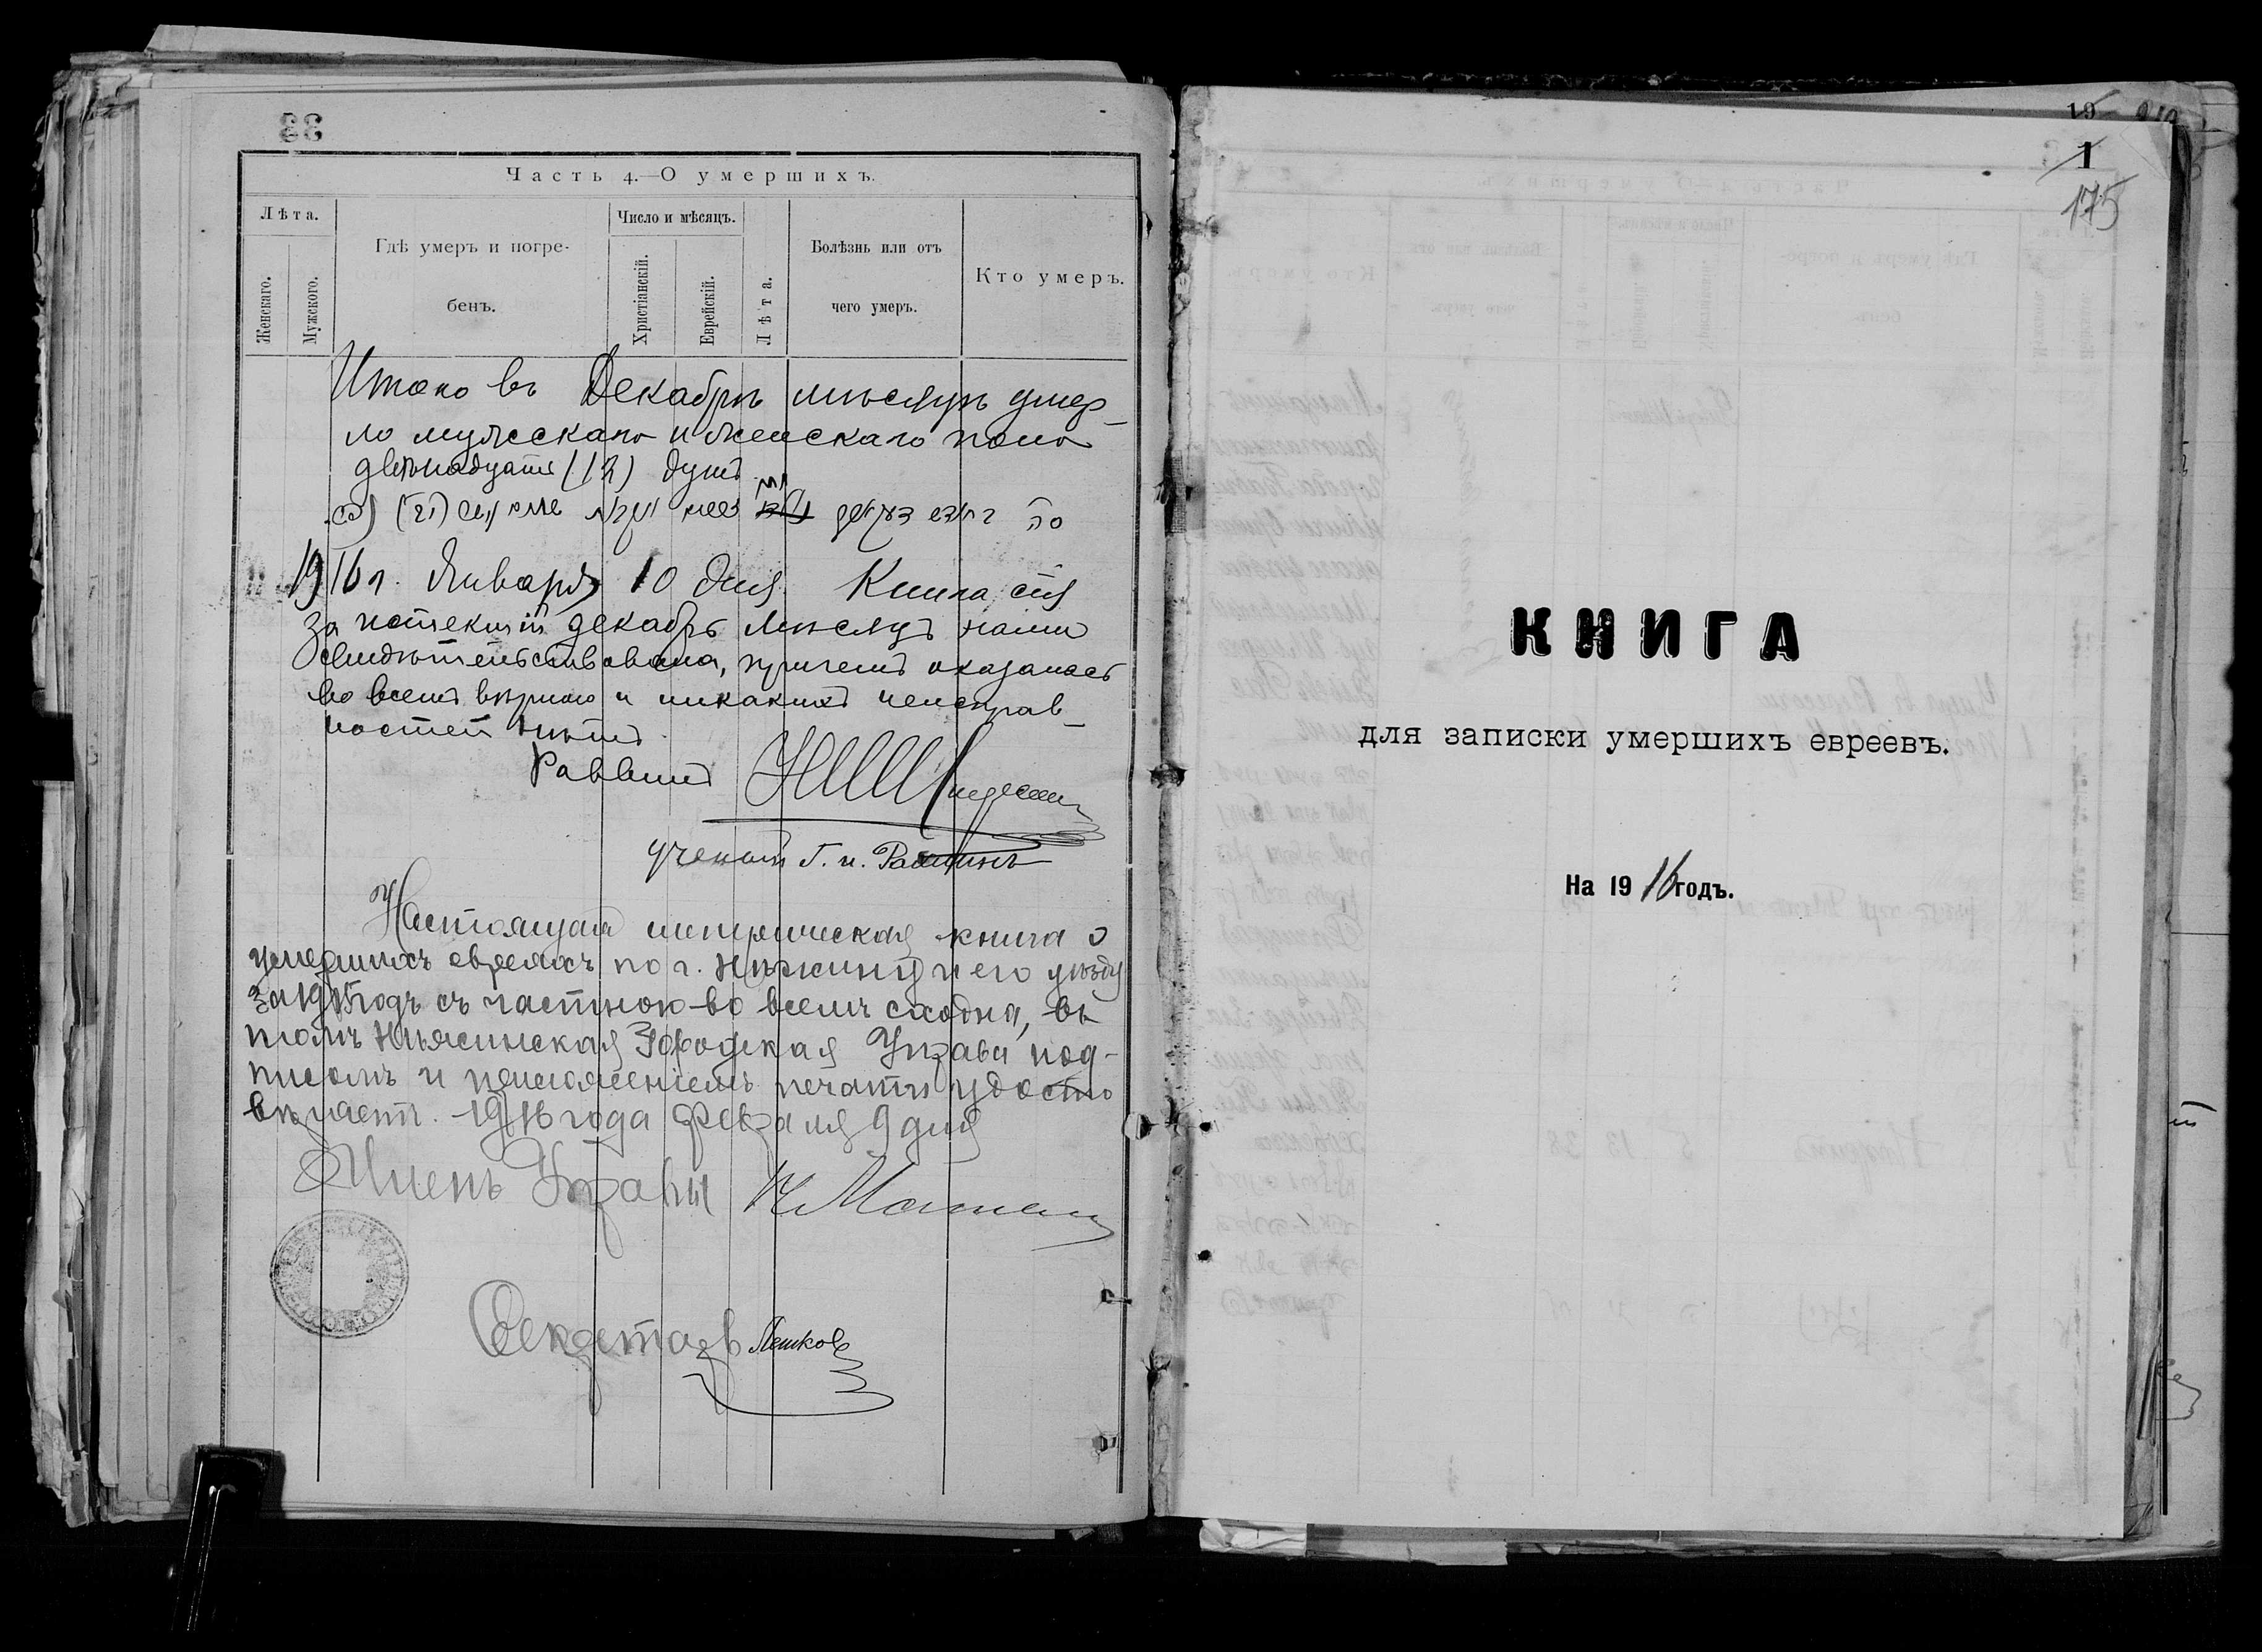 33
Часть 4.—О умершихъ.
Лѣта.
Женскаго.
Мужского.
Гдѣ умеръ и погре-
бенъ.
Число и мѣсяцъ.
Христіанскій.
Еврейскій.
Лѣта.
Болѣзнь или отъ
чего умеръ.
Кто умеръ.
Итого въ Декабрѣ мѣсяцѣ умер-
ло мужескаго и женскаго пола
двѣнадцать (12) душъ
1916 г. Января 10 дня Книга сія
за истекшій декабрь мѣсяцъ нами
свидѣтельствована, причемъ оказалась
во всемъ вѣрною и никакихъ неисправ-
ностей нѣтъ
Раввинъ
ученый Г. И. Рашкинъ
Настоящая метрическая книга о
умершихъ евреяхъ по г. Нѣжину и его уѣзду
за 1915 годъ съ частною во всемъ сходна, въ
томъ Нѣжинская Городская Управа под-
писомъ и приложеніемъ печати удосто
вѣряетъ. 1916 года Февраля 9 дня
Членъ Управы
Секретарь Пешковъ
19
1
175
КНИГА
для записки умершихъ евреевъ.
На 1916 годъ.